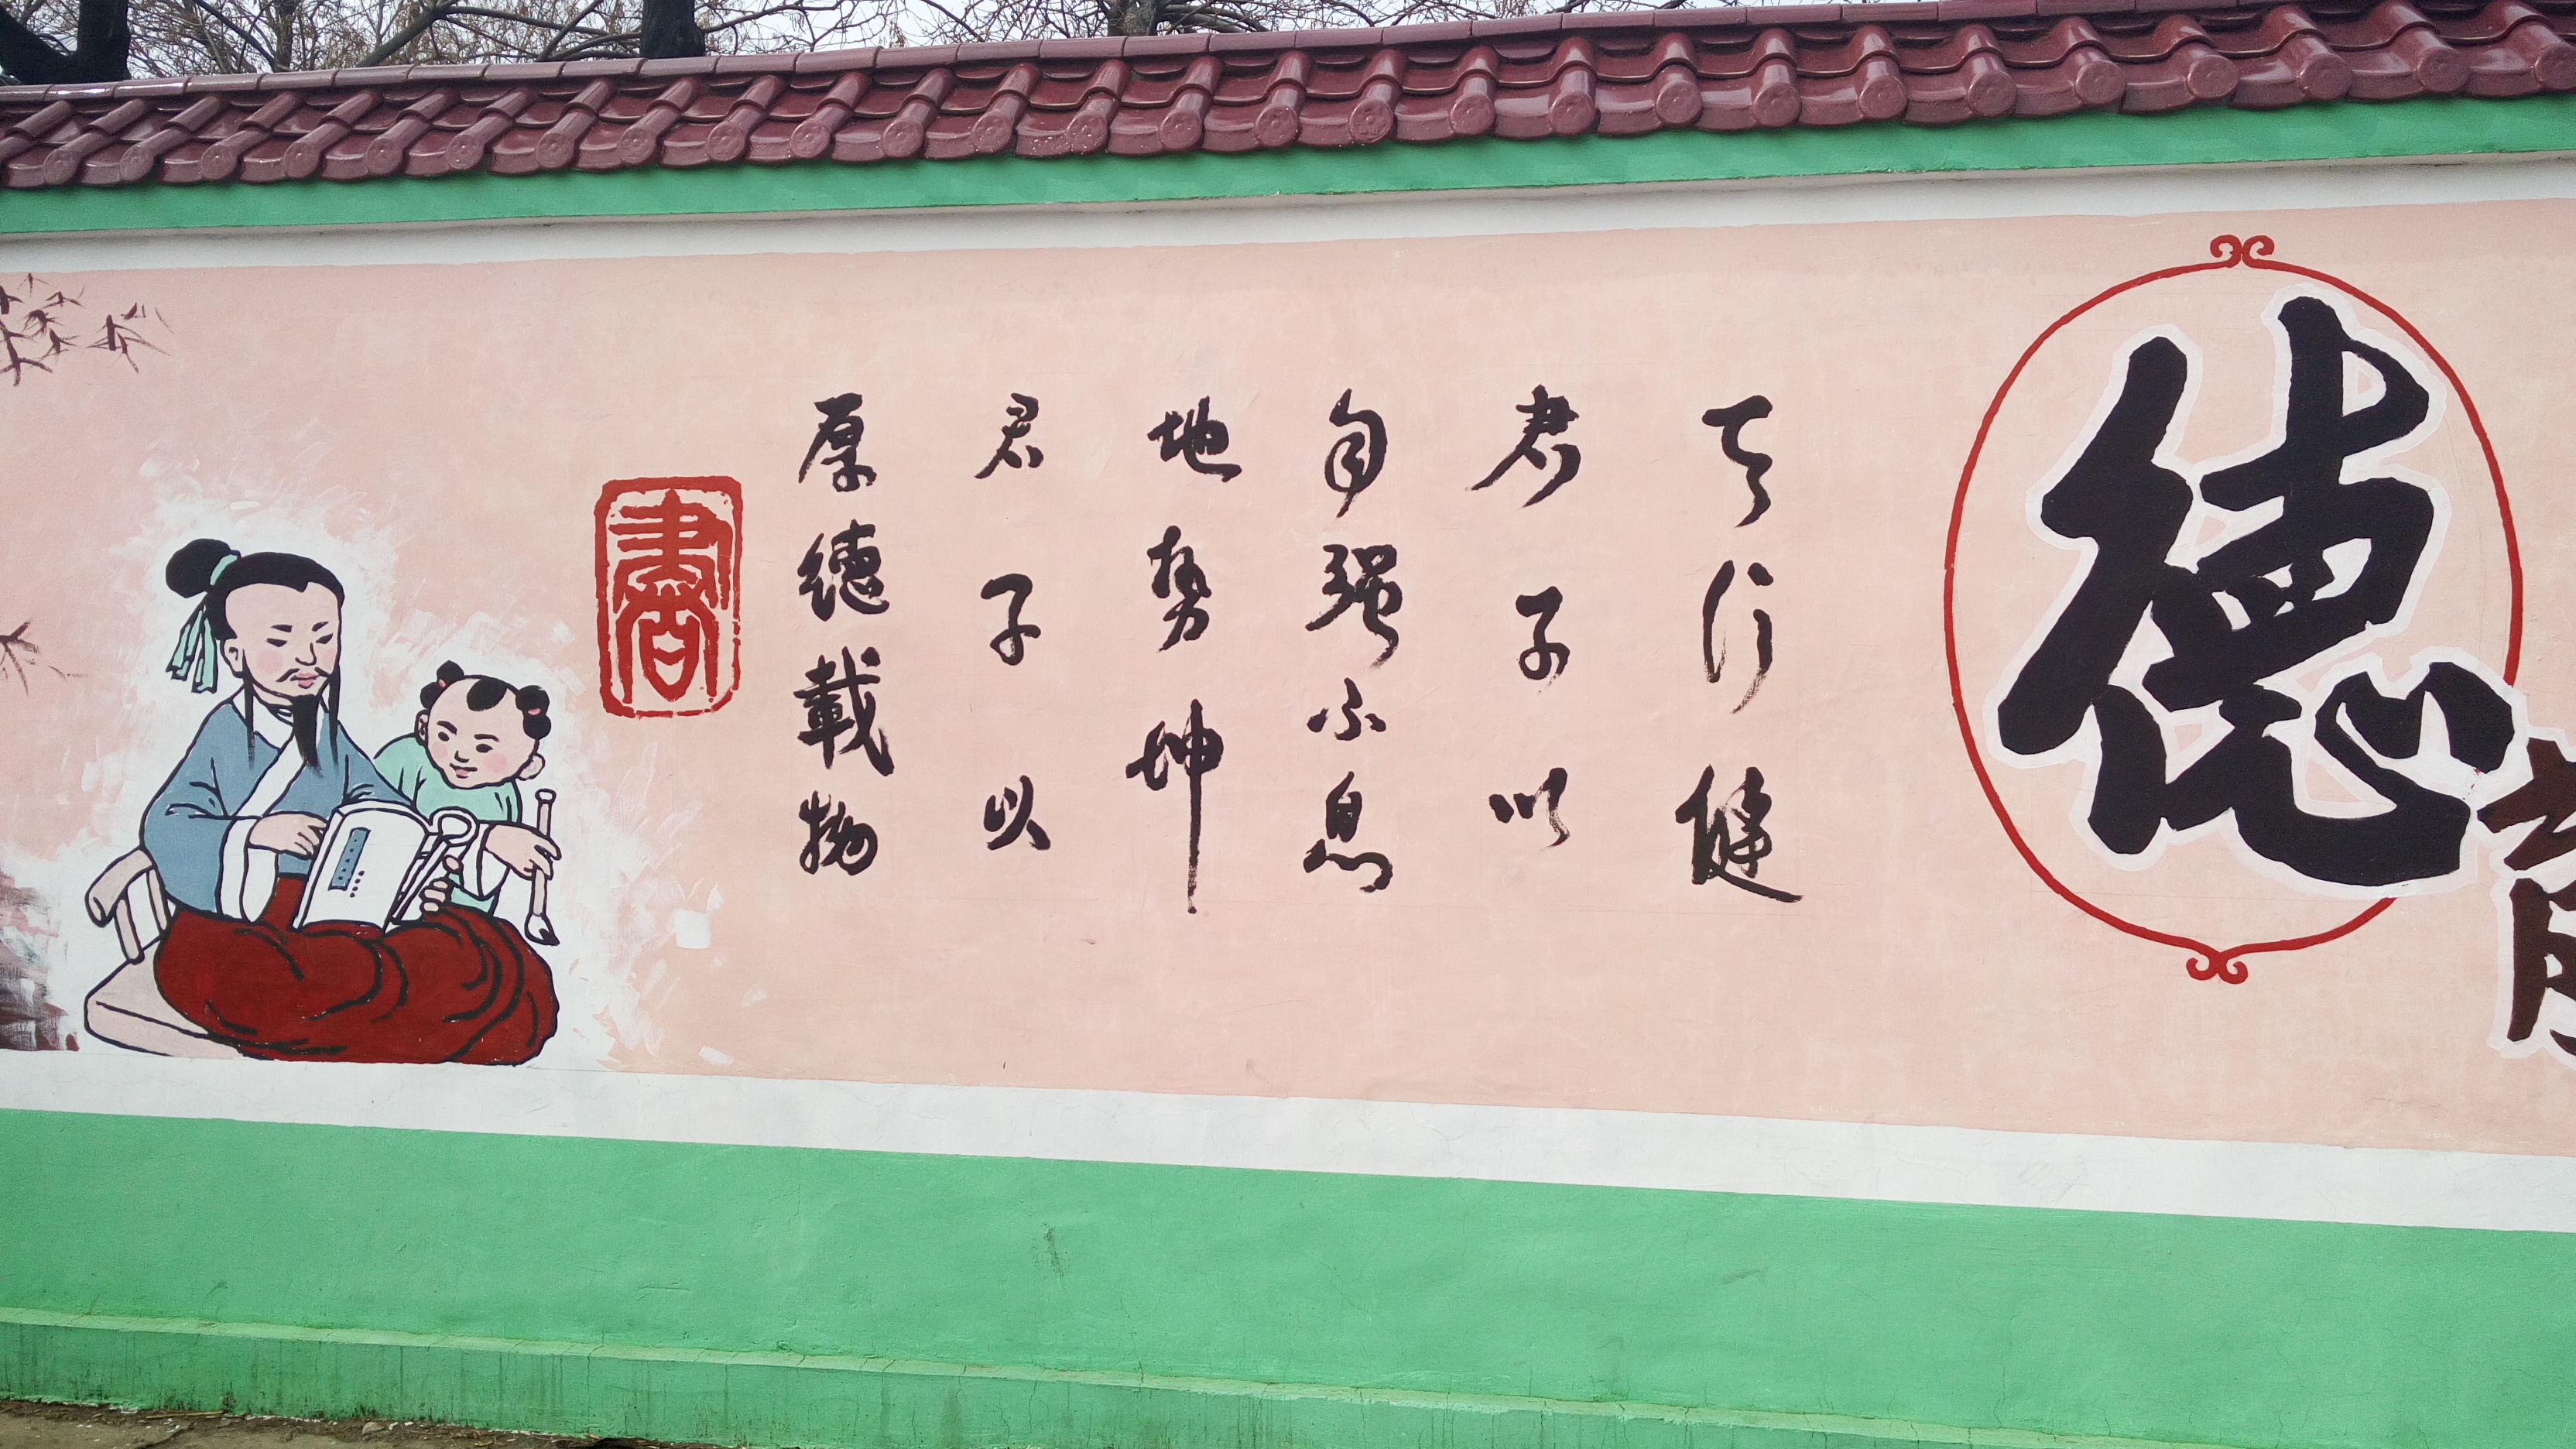 德
育
天行健
君子以
自强不息
地势坤
君子以
厚德載物